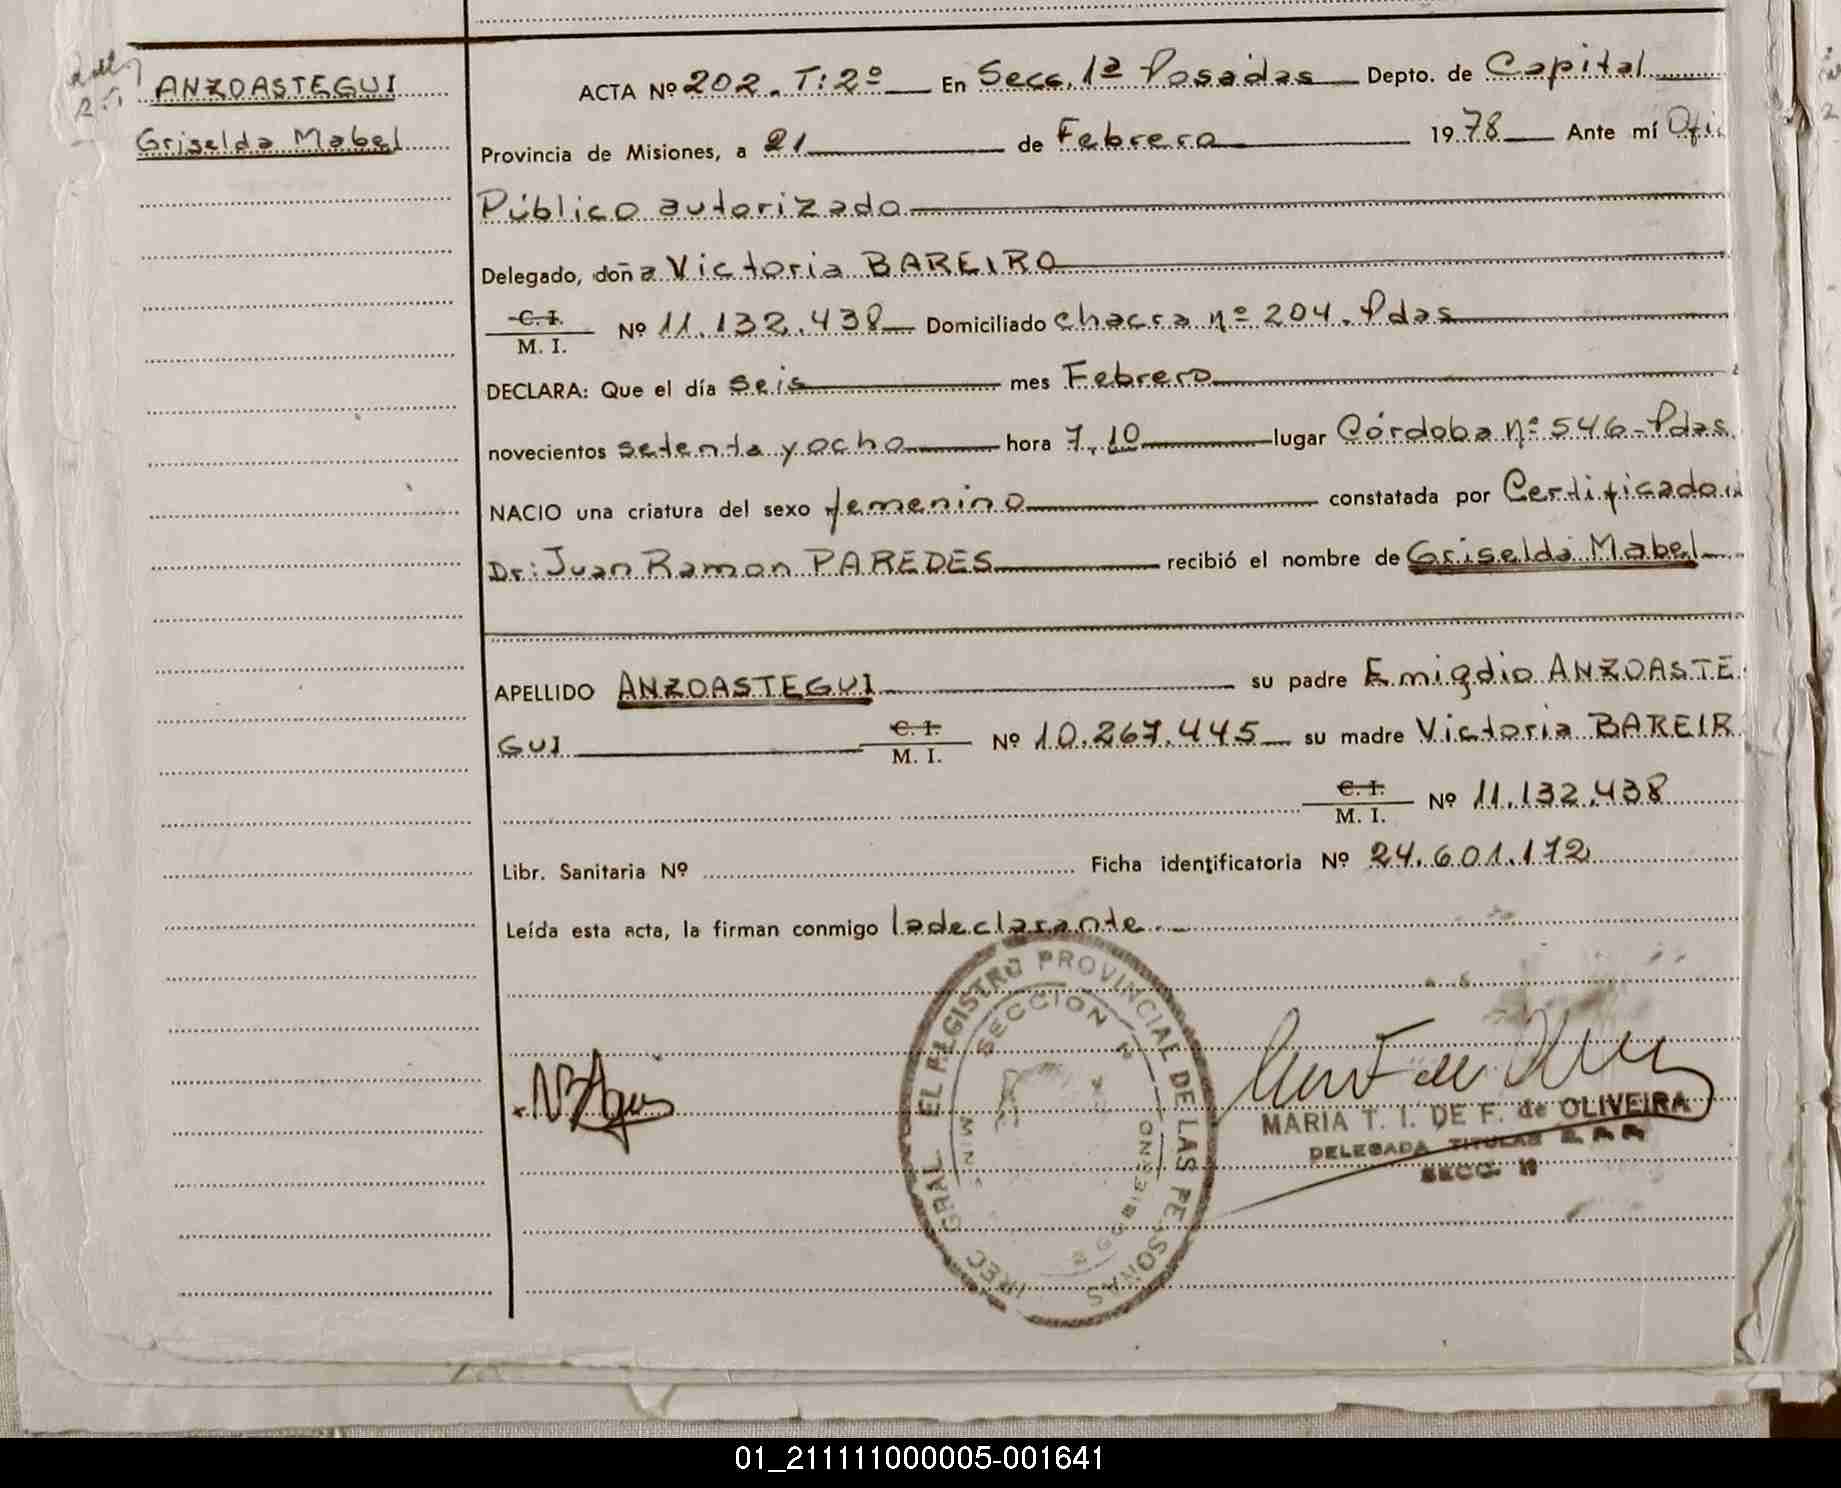 ANZOASTEGUI
Griselda Mabel
ACTA Nº 202. T: 2º En Secc. 1ª Posadas Depto. de Capital
Provincia de Misiones, a 21 de Febrero 1978 Ante mí Ofi
Público autorizado
Delegado, doña Victoria BAREIRO
C. I.
M. I. Nº 11.132.438 Domiciliado chacra nº 204. Pdas
DECLARA: Que el día seis mes Febrero
novecientos setenta y ocho hora 7.10 lugar Córdoba nº 546-Pdas
NACIO una criatura del sexo femenino constatada por Certificado
Dr: Juan Ramon PAREDES recibió el nombre de Griselda Mabel
APELLIDO ANZOASTEGUI su padre Emigdio ANZOASTE
GUI C. I. M. I. Nº 10.267.445 su madre Victoria BAREIR
C. I.
M. I. Nº 11.132.438
Libr. Sanitaria Nº Ficha identificatoria Nº 24.601.172
Leída esta acta, la firman conmigo la declarante
GRAL EL REGISTRO PROVINCIAL DE LAS PERSONAS
SECCION
MARIA T. I. DE F. de OLIVEIRA
DELEGADA TITULAR R. P. P.
SECC. 1ª
01_211111000005-001641